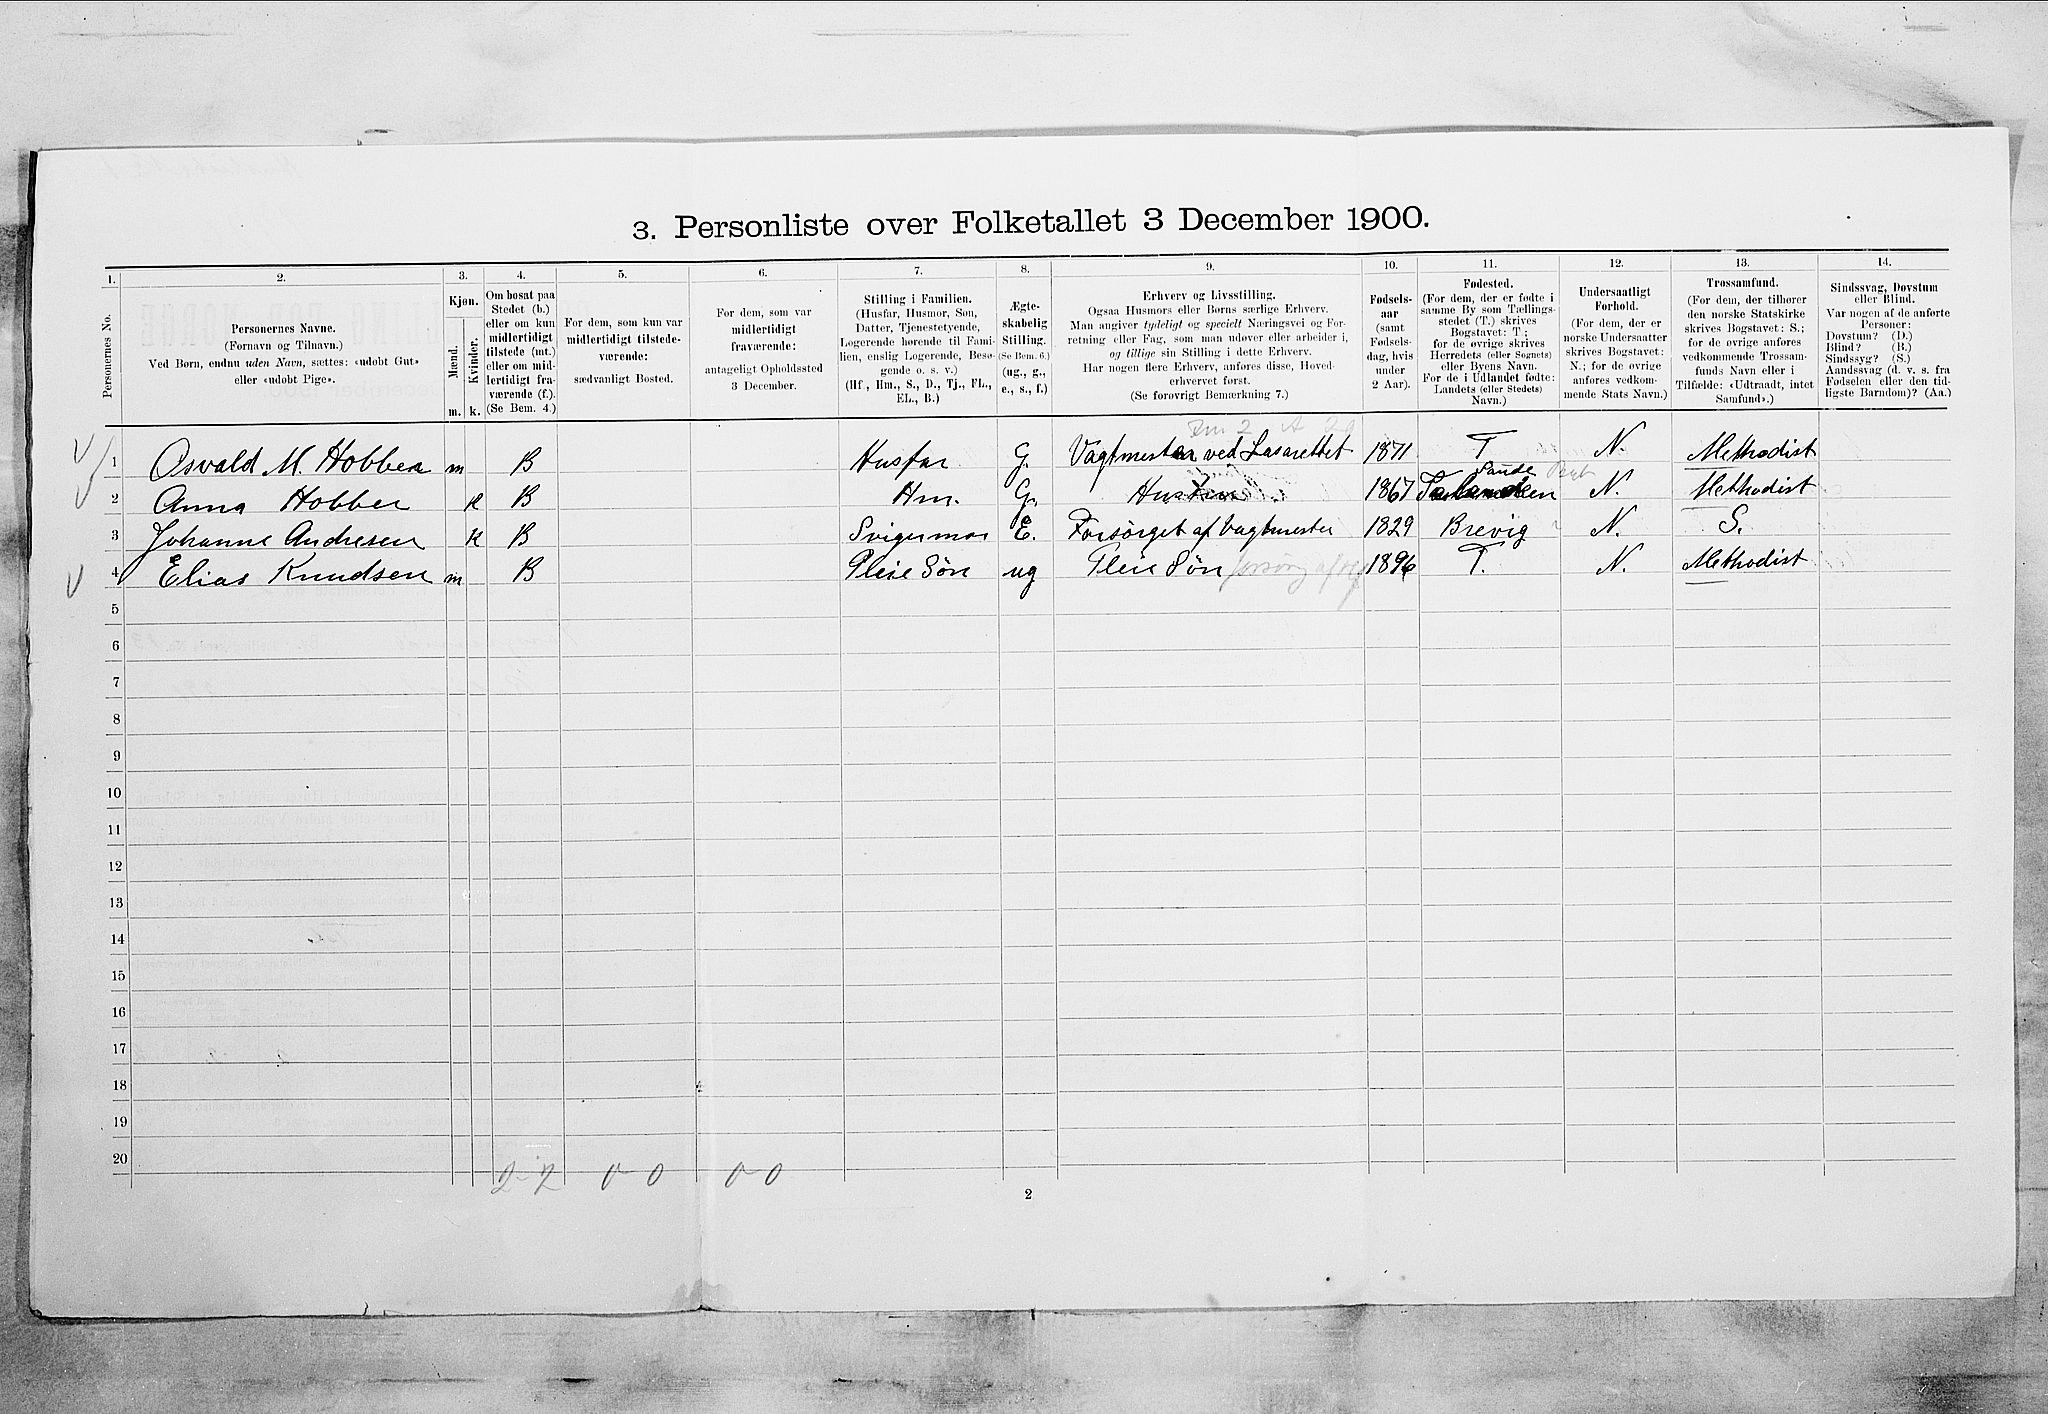 3. Personliste over Folketallet 3 December 1900.
1. 2. 3. 4. 5. 6. 7. 8. 9. 10. 11. 12. 13. 14.
Personernes No.
Personernes Navne.
(Fornavn og Tilnavn.)
Ved Børn, endnu uden Navn, sættes: «udøbt Gut»
eller «udøbt Pige».
Kjøn.
Mænd.
Kvinder.
m. k.
Om bosat paa
Stedet (b.)
eller om kun
midlertidigt
tilstede (mt.)
eller om mid-
lertidigt fra-
værende (f.).
(Se Bem. 4.)
For dem, som kun var
midlertidigt tilstede-
værende:
sædvanligt Bosted.
For dem, som var
midlertidigt
fraværende:
antageligt Opholdssted
3 December.
Stilling i Familien.
(Husfar, Husmor, Søn,
Datter, Tjenestetyende,
Logerende hørende til Fami-
lien, enslig Logerende, Besø-
gende o. s. v.)
(Hf., Hm., S., D., Tj., FL.,
EL., B.)
Ægte-
skabelig
Stilling.
(Se Bem. 6.)
(ug., g.,
e., s., f.)
Erhverv og Livsstilling.
Ogsaa Husmors eller Børns særlige Erhverv.
Man angiver tydeligt og specielt Næringsvei og For-
retning eller Fag, som man udøver eller arbeider i,
og tillige sin Stilling i dette Erhverv.
Har nogen flere Erhverv, anføres disse, Hoved-
erhvervet først.
(Se forøvrigt Bemærkning 7.)
Fødsels-
aar
(samt
Fødsels-
dag, hvis
under
2 Aar).
Fødested.
(For dem, der er fødte i
samme By som Tællings-
stedet (T.) skrives
Bogstavet: T.;
for de øvrige skrives
Herredets (eller Sognets)
eller Byens Navn.
For de i Udlandet fødte:
Landets (eller Stedets)
Navn.)
Undersaatligt
Forhold.
(For dem, der er
norske Undersaatter
skrives Bogstavet:
N.; for de øvrige
anføres vedkom-
mende Stats Navn.)
Trossamfund.
(For dem, der tilhører
den norske Statskirke
skrives Bogstavet: S.;
for de øvrige anføres
vedkommende Trossam-
funds Navn eller i
Tilfælde: «Udtraadt, intet
Samfund».)
Sindssvag, Døvstum
eller Blind.
Var nogen af de anførte
Personer:
Døvstum? (D.)
Blind? (B.)
Sindssyg? (S.)
Aandssvag (d. v. s. fra
Fødselen eller den tid-
ligste Barndom)? (Aa.)
1 Osvald M. Hobber m B Husfar G. Vagtmester ved Lasarettet 1871 T N. Methodist
Sande
2 Anna Hobber k B Hm. G. 1867 N. Methodist
3 Johanne Andresen k B Svigermor E. Forsørget af Vagtmester 1829 Brevig N. S.
4 Elias Knudsen m B Pleie Søn ug Pleie Søn 1896 T. N. Methodist
5
6
7
8
9
10
11
12
13
14
15
16
17
18
19
20
2-2 0-0 0-0
2